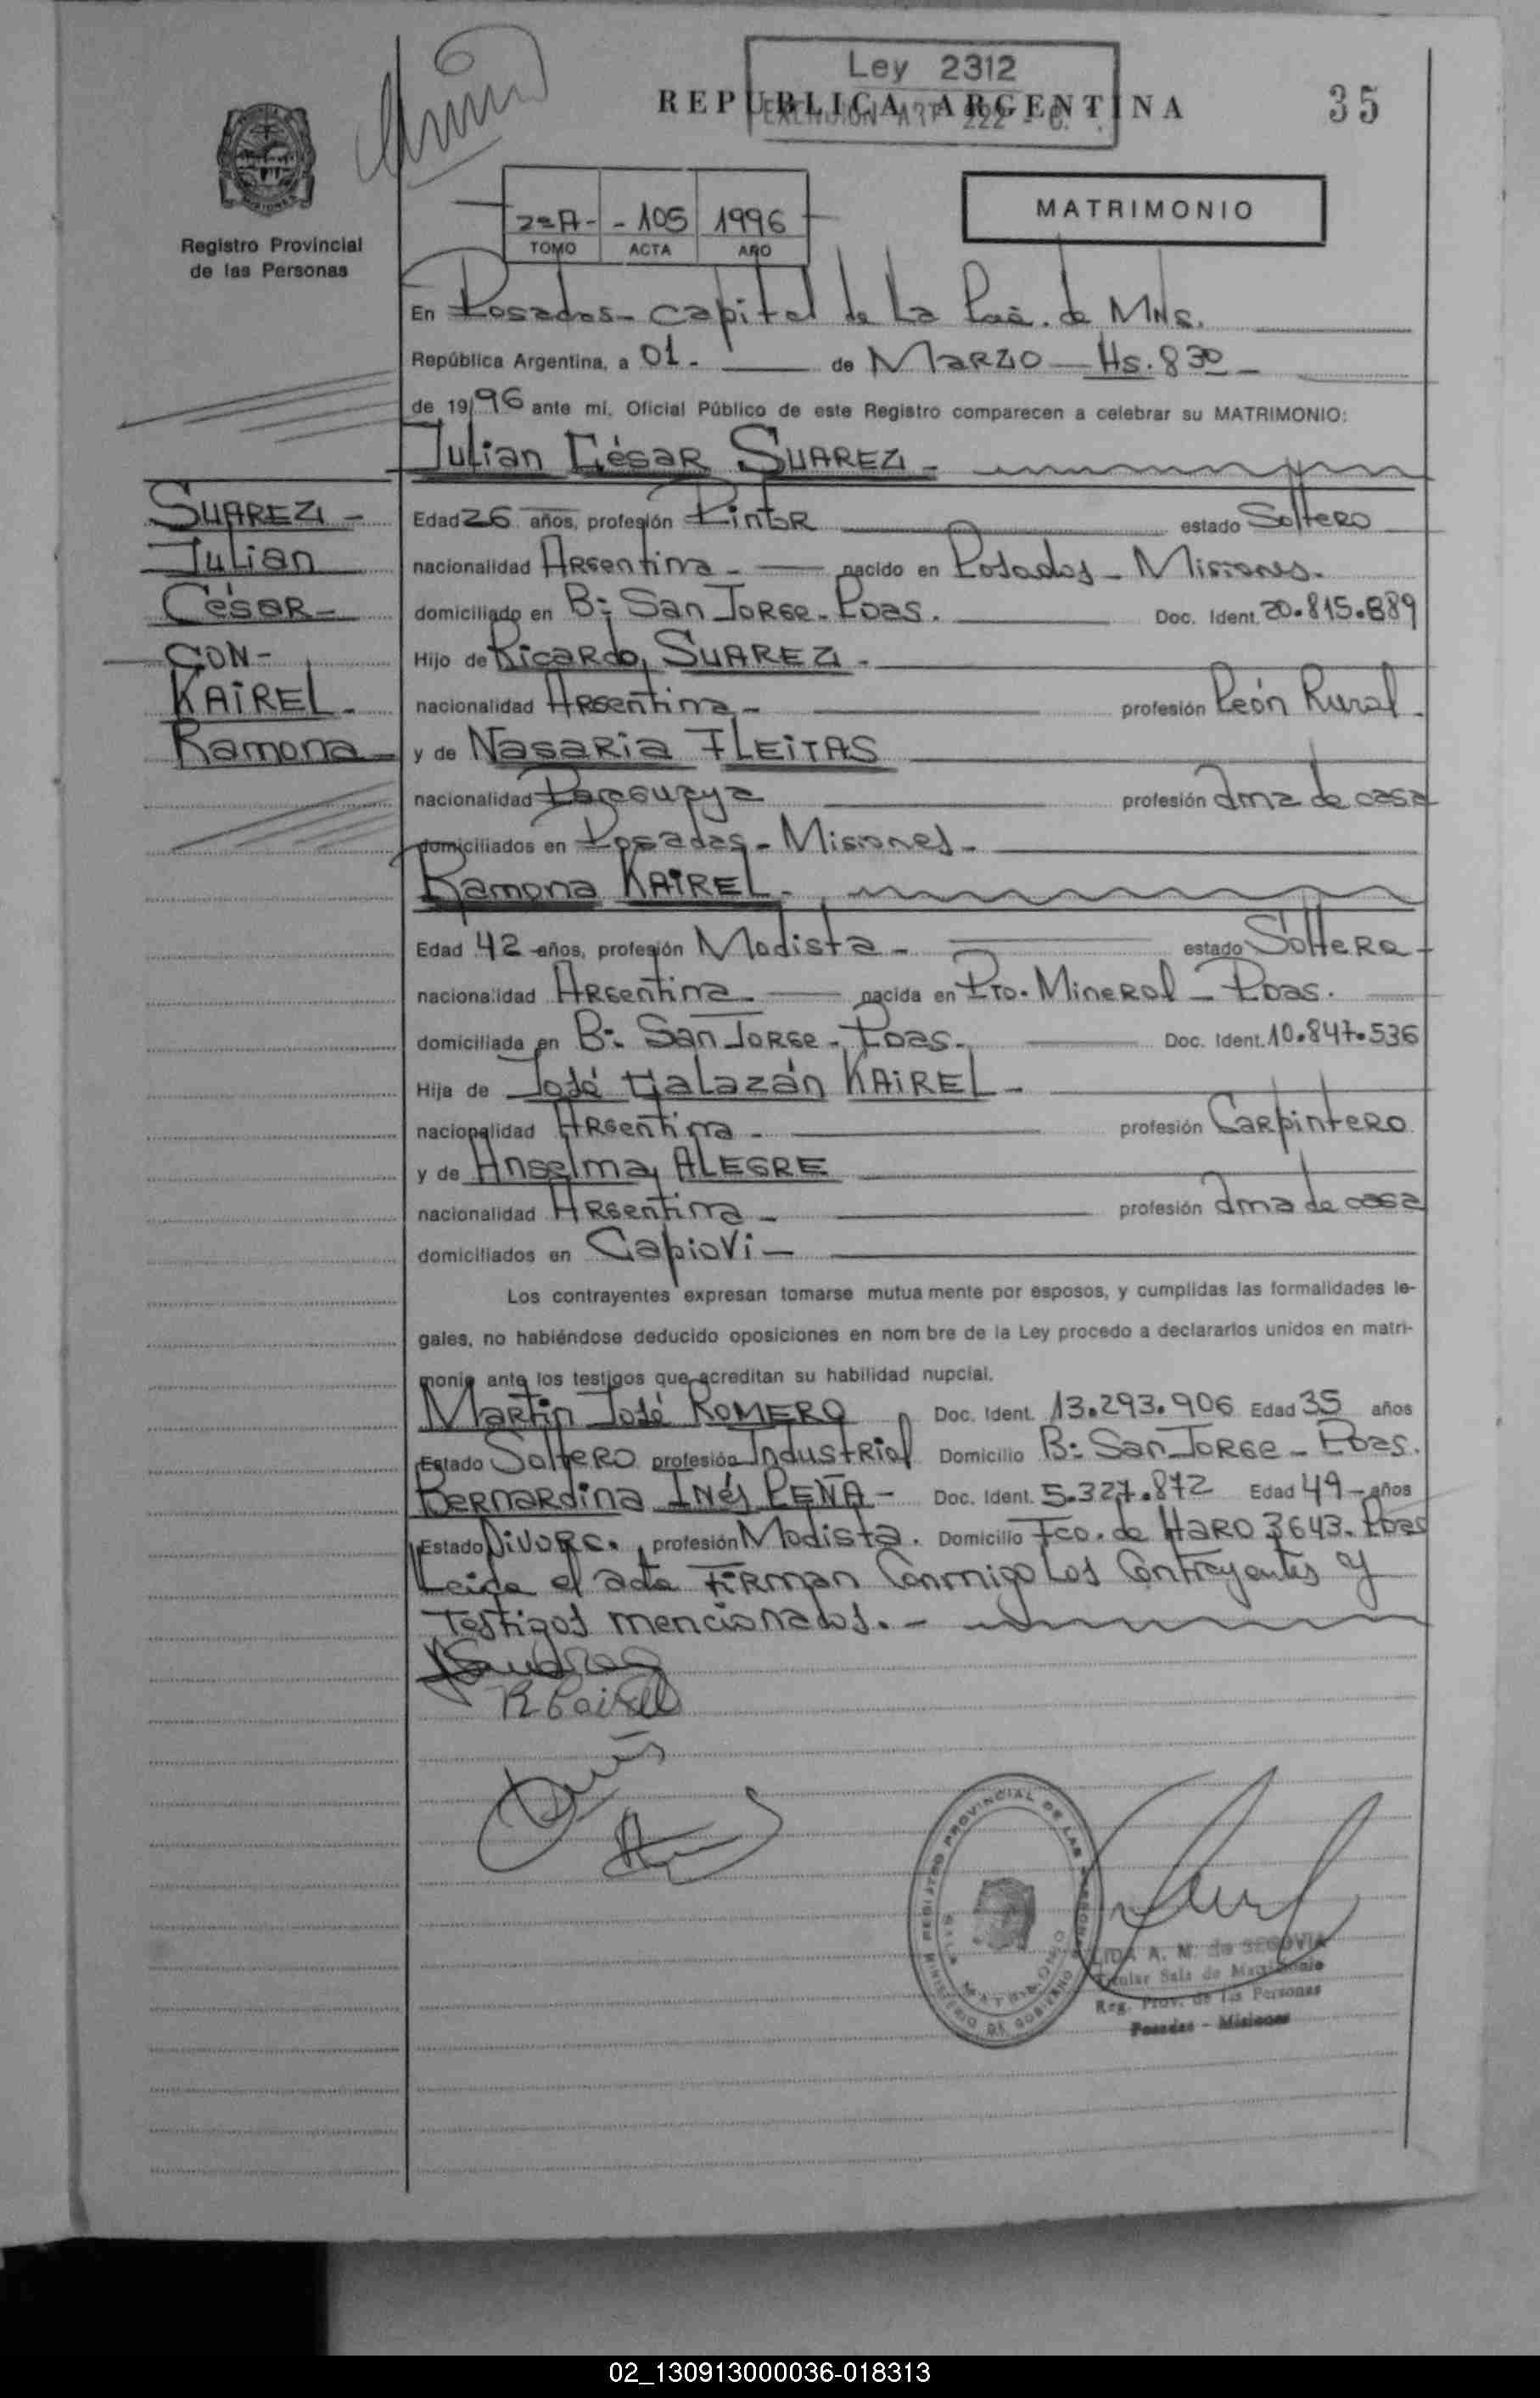 Ley 2312
REPUBLICA ARGENTINA
35
Registro Provincial
de las Personas
2ºA - - 105 1996
TOMO ACTA AÑO
MATRIMONIO
En Posadas - capital de La Pcia. de Mns.
República Argentina, a 01 - de MARZO - Hs. 8 30 -
de 1996 ante mí, Oficial Público de este Registro comparecen a celebrar su MATRIMONIO:
Julian César SUAREZ -
SUAREZ -
Julian
César -
CON -
KAIREL -
Ramona -
Edad 26 años, profesión Pintor estado Soltero
nacionalidad Argentina - nacido en Posadas - Misiones.
domiciliado en B: San Jorge - Pdas. Doc. Ident. 20.815.889
Hijo de Ricardo SUAREZ -
nacionalidad Argentina - profesión Peón Rural -
y de Nasaria FLEITAS
nacionalidad Paraguaya profesión ama de casa
domiciliados en Posadas - Misiones -
Ramona KAIREL -
Edad 42 años, profesión Modista - estado Soltera -
nacionalidad Argentina - nacida en Pto. Mineral - Pdas.
domiciliada en B: San Jorge - Pdas - Doc. Ident. 10.847.536
Hija de José Galazán KAIREL -
nacionalidad Argentina - profesión Carpintero
y de Anselma ALEGRE
nacionalidad Argentina - profesión ama de casa
domiciliados en Capioví -
Los contrayentes expresan tomarse mutua mente por esposos, y cumplidas las formalidades le-
gales, no habiéndose deducido oposiciones en nom bre de la Ley procedo a declararlos unidos en matri-
monio ante los testigos que acreditan su habilidad nupcial.
Martin José ROMERO Doc. Ident. 13.293.906 Edad 35 años
Estado Soltero profesión Industrial Domicilio B: San Jorge - Pdas.
Bernardina Inés PEÑA - Doc. Ident. 5.327.872 Edad 49 - años
Estado Divorc. profesión Modista. Domicilio Fco. de Haro 3643. Pdas
Leida el acta firman Conmigo Los Contrayentes y
Testigos mencionados. -
REGISTRO PROVINCIAL DE LAS PERSONAS
MATRIMONIO
MINISTERIO DE GOBIERNO
A. M. de SEGOVIA
Titular Sala de Matrimonio
Reg. Prov. de las Personas
Posadas - Misiones
02_130913000036-018313